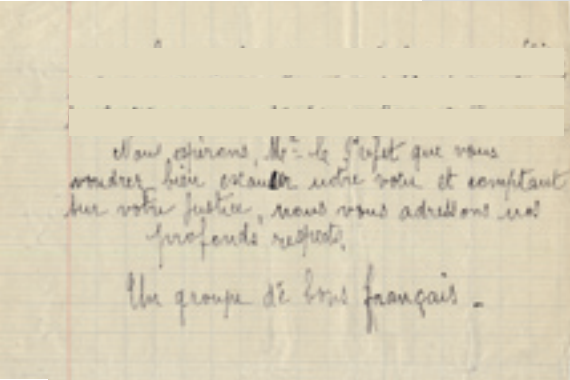 Nous espérons, Mr le Préfet que vous
voudrez bien exaucer notre voeu et comptant
sur votre justice, nous vous adressons nos
profonds respects.
Un groupe de bons français.